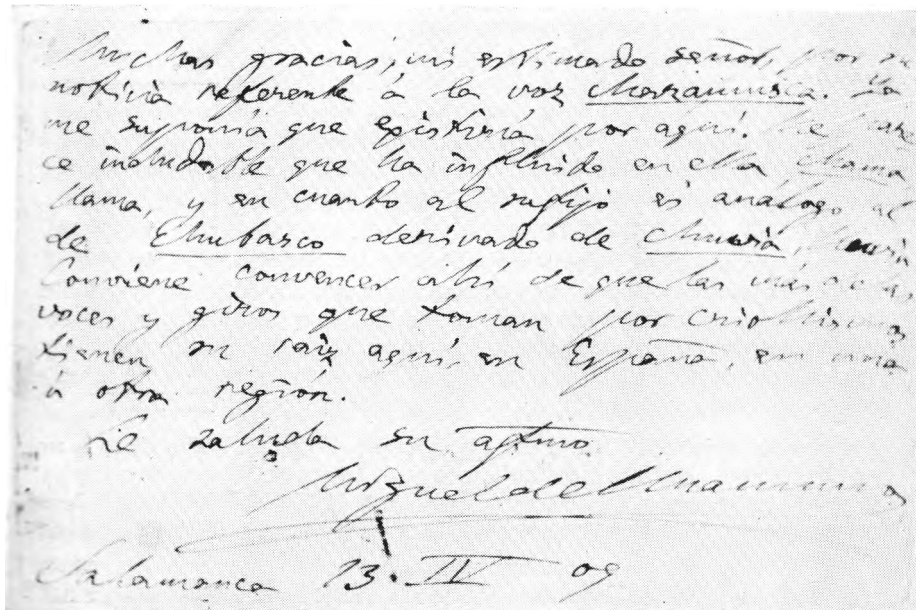 Muchas gracias, mi estimado señor, por su
noticia referente á la voz charamusca. Ya
me suponía que existiría por aquí. Me pare
ce indudable que ha influido en ella chama
llama, y en cuanto al sufijo es análogo al
de Chubasco derivado de chuvia, lluvia
Conviene convencer ahí de que las más de las
voces y giros que toman por criollismos
tienen su raiz aquí, en España, en una
ú otra región.
Le saluda su aftmo
Miguel de Unamuno
Salamanca 13. IV 09